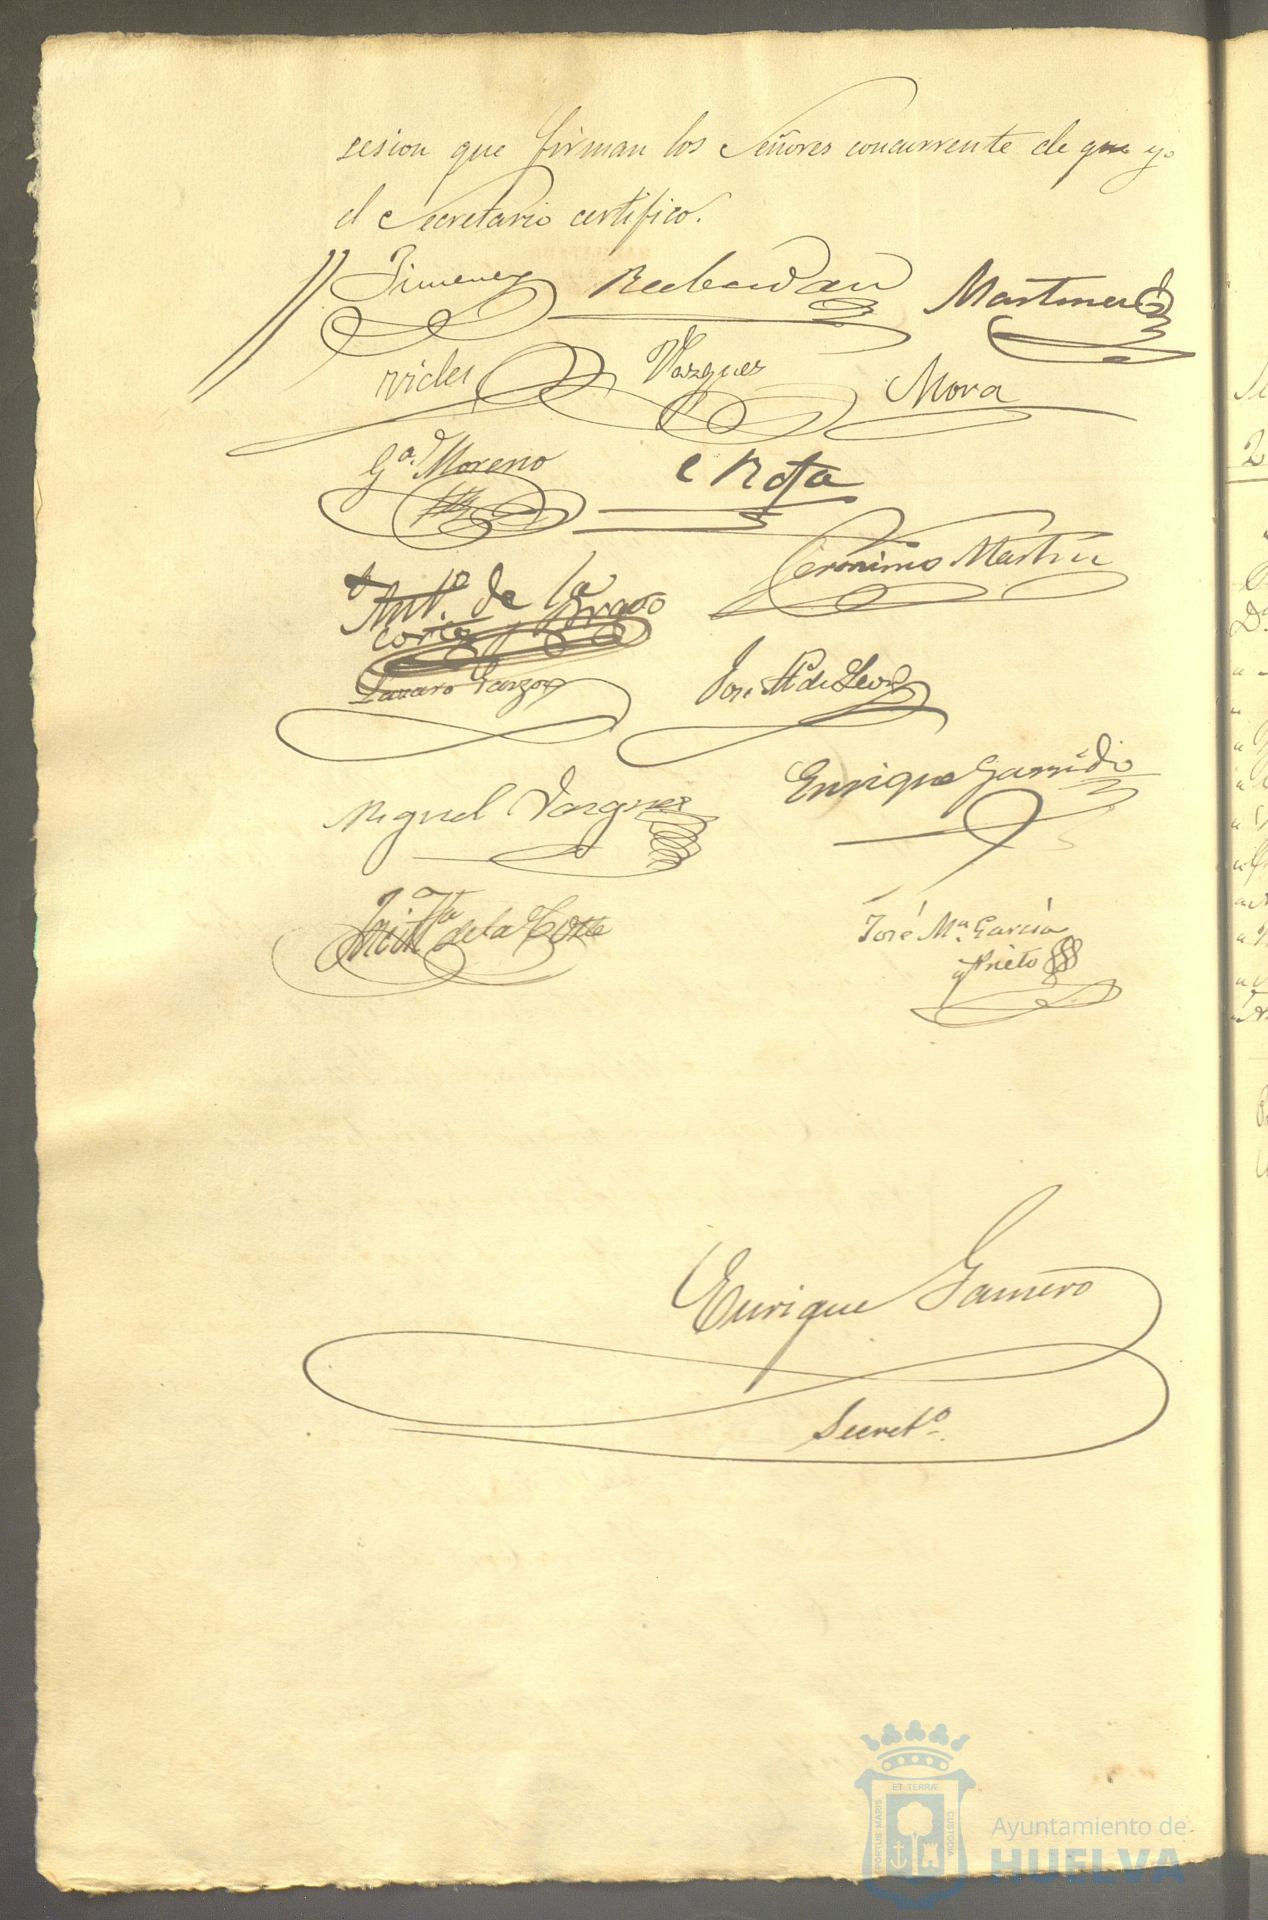 sesion que firman los Señores concurrente de que yo
el Secretario certifico.
Jimenez
Martinez
Vazquez
Mora
Gª Moreno
Rofa
Antº de la
Corte y Bravo
Geronimo Martin
Lazaro Garzon
José Mª de Leon
Miguel Vazquez
Enrique Garrido
de la Corte
José Mª García
y Prieto
Enrique Gamero
Secretº
ET TERRÆ
PORTUS MARIS
CUSTODIA
Ayuntamiento de
HUELVA